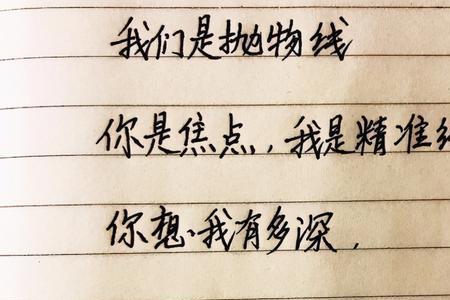 我们是抛物线
你是焦点，我是精准
你想、我有多深，